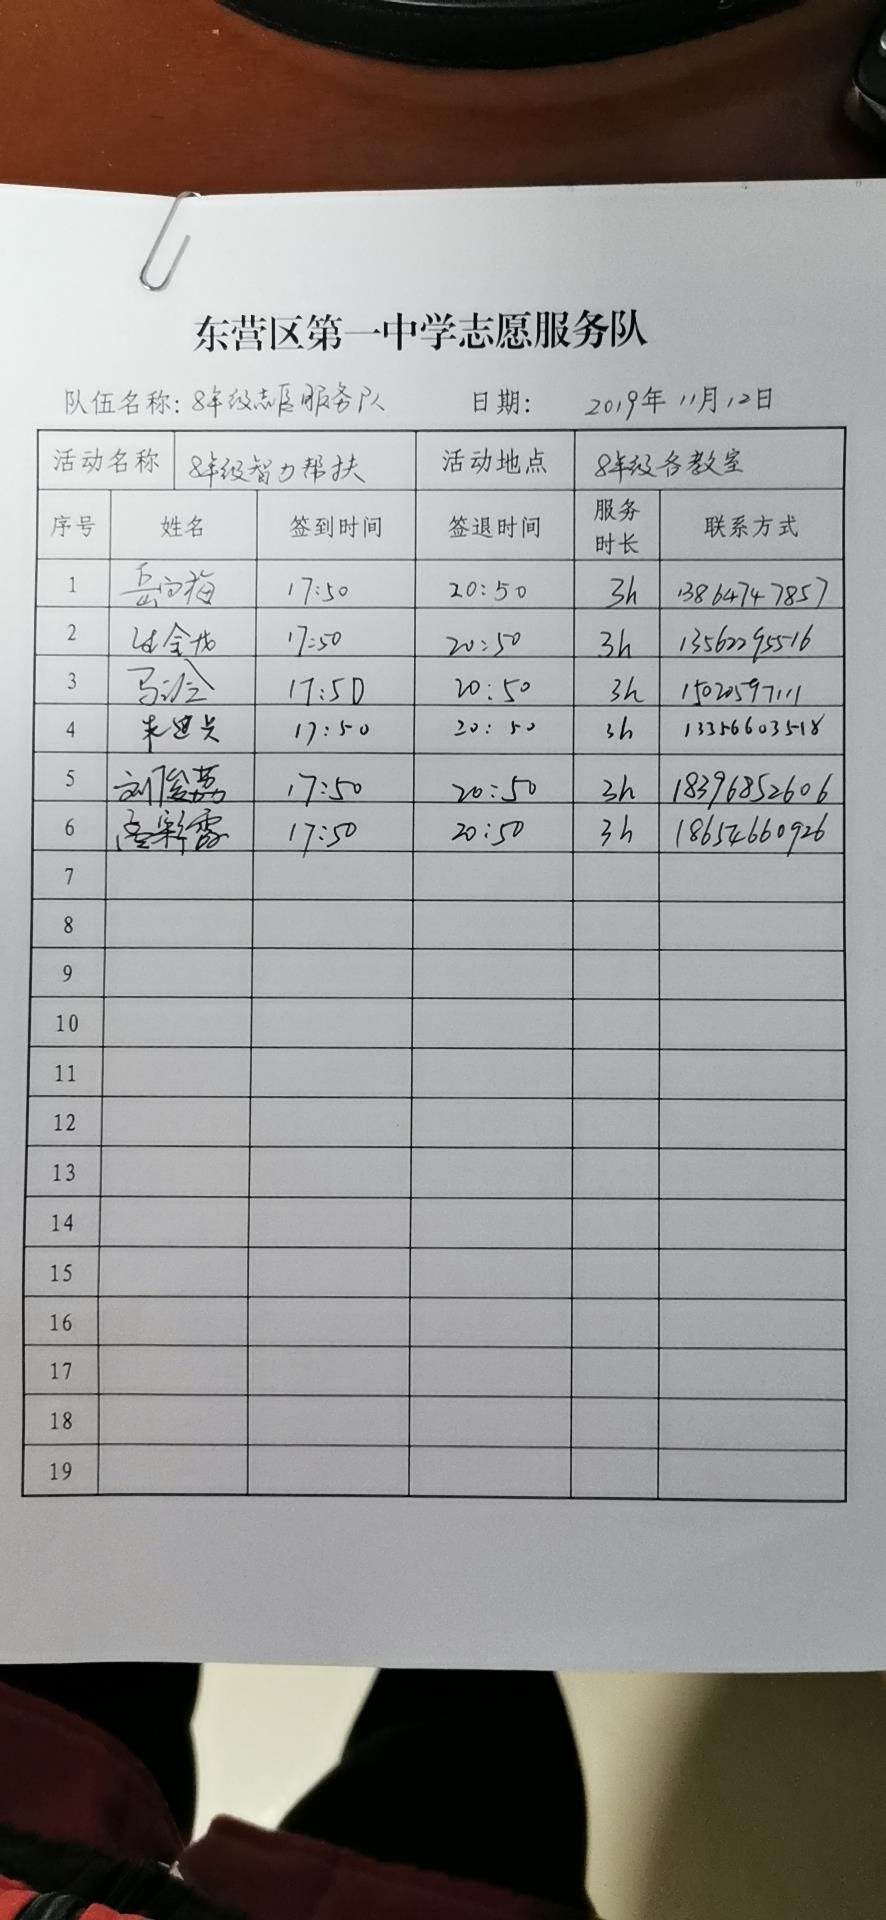 东营区第一中学志愿服务队
队伍名称：8年级志愿服务队 日期： 2019年11月12日
活动名称 8年级智力帮扶 活动地点 8年级各教室
序号 姓名 签到时间 签退时间 服务时长 联系方式
1 17:50 20:50 3h 13864747857
2 17:50 20:50 3h 13562295516
3 17:50 20:50 3h 15020597111
4 17:50 20:50 3h 13356603518
5 刘俊荔 17:50 20:50 3h 18396852606
6 17:50 20:50 3h 18654660926
7
8
9
10
11
12
13
14
15
16
17
18
19